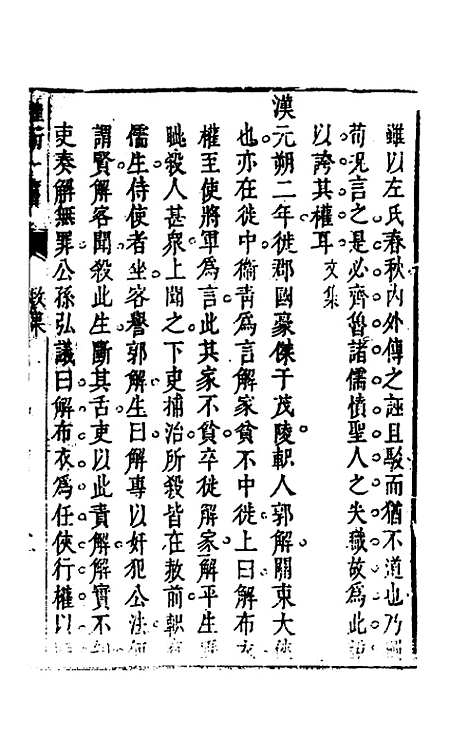 雖以左氏春秋內外傳之誣且駁而猶不道也乃
荀況言之是必齊魯諸儒憤聖人之失職故爲此
以誇其權耳文集
漢元朔二年徙郡國豪傑于茂陵軹人郭解關東大俠
也亦在徙中衞青爲言解家貧不中徙上曰解布衣
權至使將軍爲言此其家不貧卒徙解家解平生睚
眦殺人甚衆上聞之下吏捕治所殺皆在赦前軹有
儒生侍使者坐客譽郭解生曰解專以奸犯公法何
謂賢解客聞殺此生斷其舌吏以此責解解實不知
吏奏解無罪公孫弘議曰解布衣爲任俠行權以